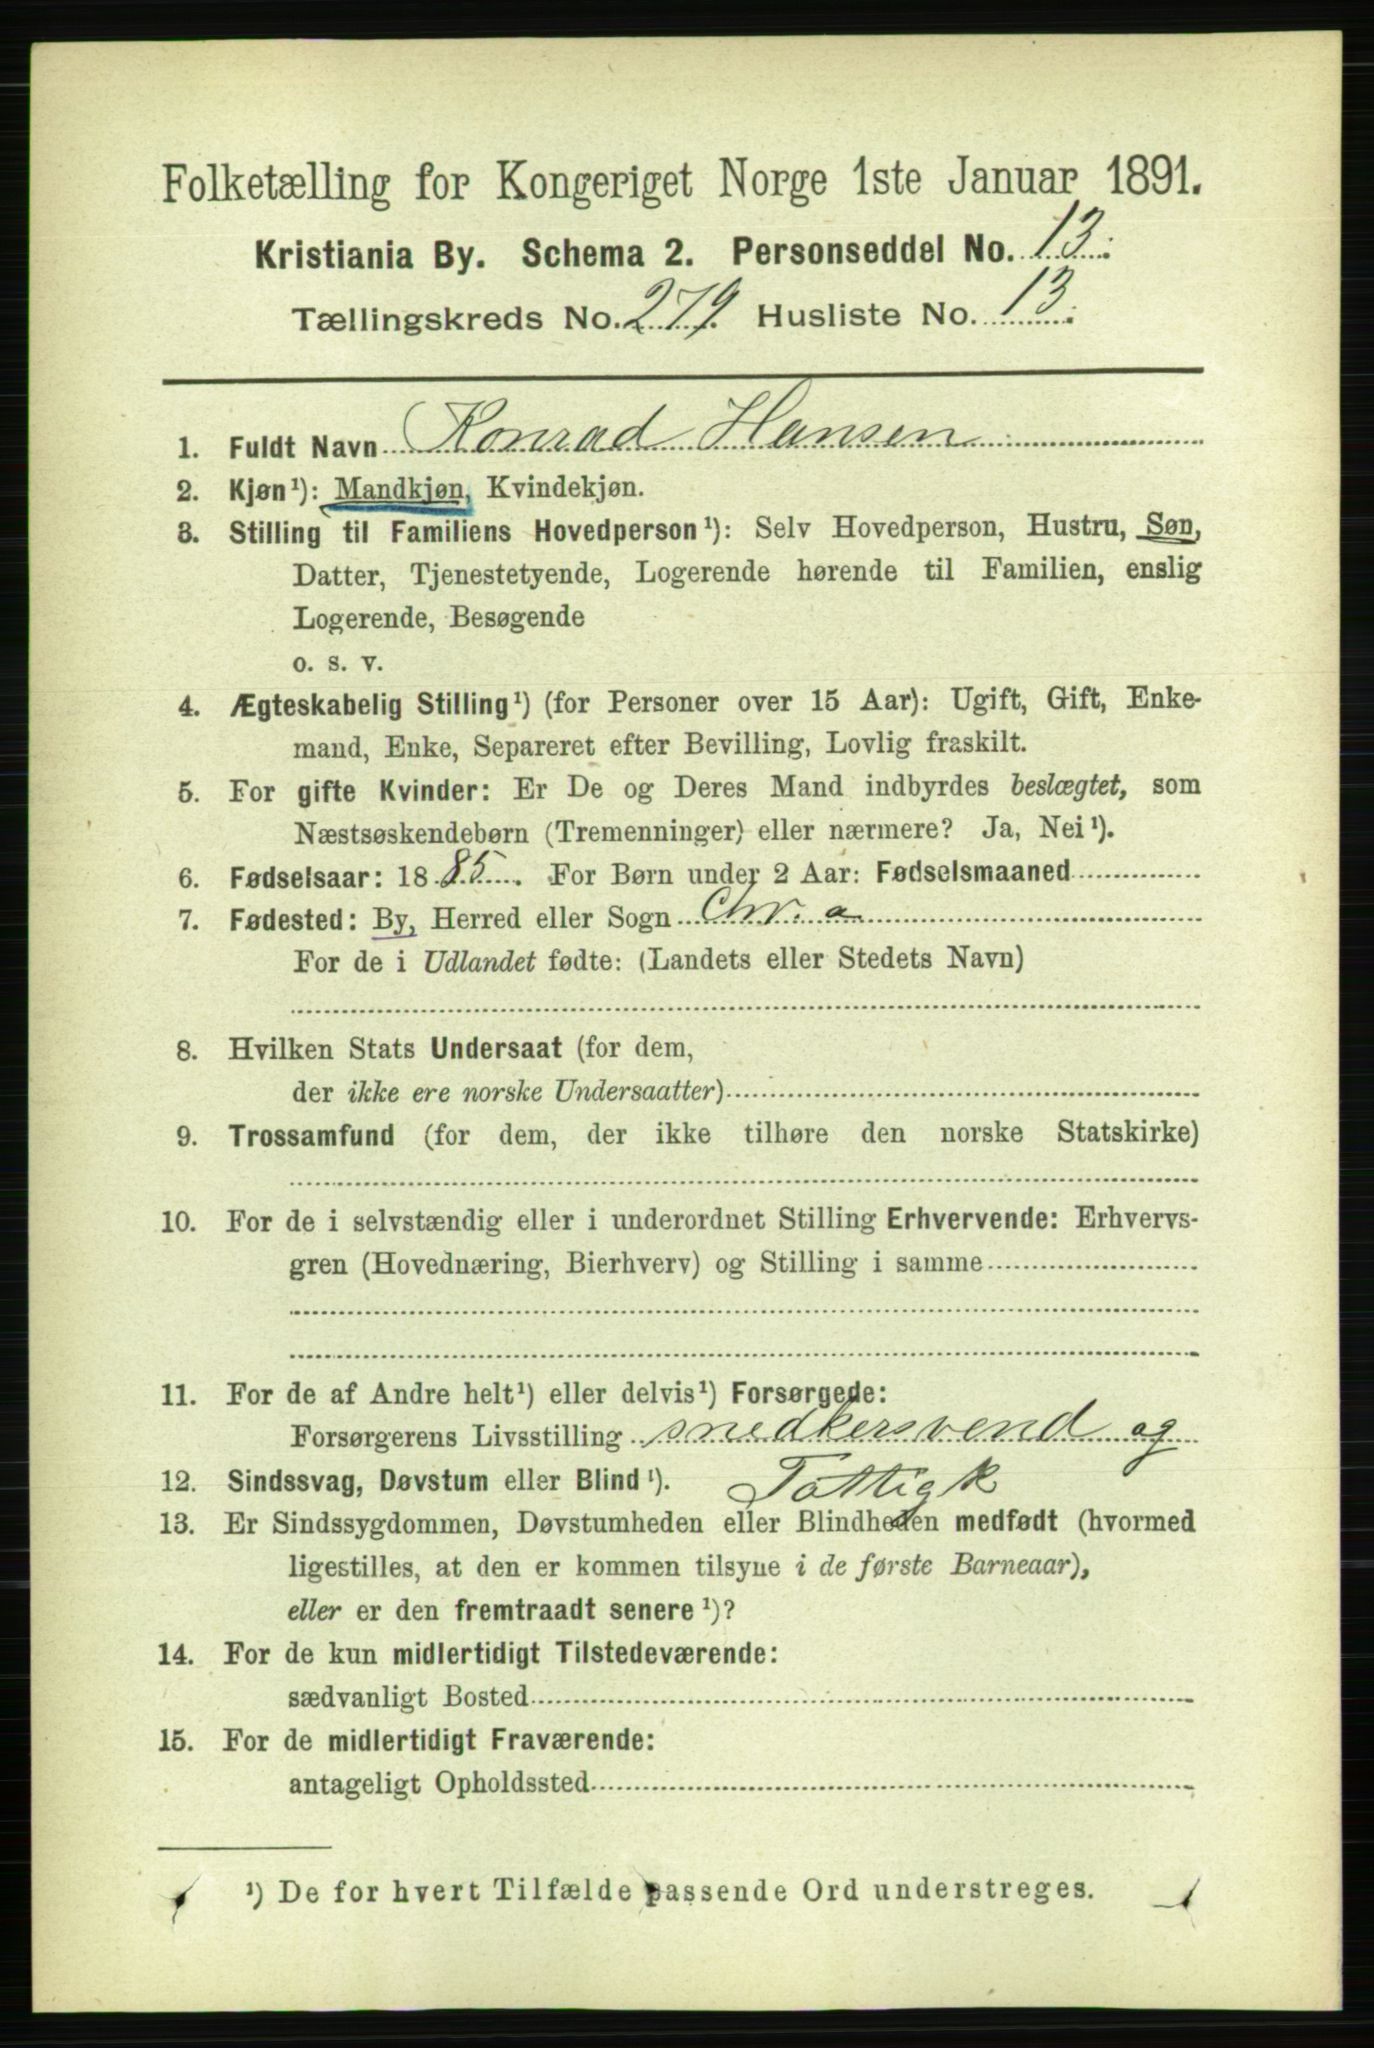 Folketælling for Kongeriget Norge 1ste Januar 1891.
Kristiania By. Schema 2. Personseddel No. 13.
Tællingskreds No. 279. Husliste No. 13.
1. Fuldt Navn Konrad Hansen
2. Kjøn¹): Mandkjøn, Kvindekjøn.
3. Stilling til Familiens Hovedperson¹): Selv Hovedperson, Hustru, Søn,
Datter, Tjenestetyende, Logerende hørende til Familien, enslig
Logerende, Besøgende
o. s. v.
4. Ægteskabelig Stilling¹) (for Personer over 15 Aar): Ugift, Gift, Enke-
mand, Enke, Separeret efter Bevilling, Lovlig fraskilt.
5. For gifte Kvinder: Er De og Deres Mand indbyrdes beslægtet, som
Næstsøskendebørn (Tremenninger) eller nærmere? Ja, Nei¹).
6. Fødselsaar: 1885. For Børn under 2 Aar: Fødselsmaaned
7. Fødested: By, Herred eller Sogn Chr.a
For de i Udlandet fødte: (Landets eller Stedets Navn)
8. Hvilken Stats Undersaat (for dem,
der ikke ere norske Undersaatter)
9. Trossamfund (for dem, der ikke tilhøre den norske Statskirke)
10. For de i selvstændig eller i underordnet Stilling Erhvervende: Erhvervs-
gren (Hovednæring, Bierhverv) og Stilling i samme
11. For de af Andre helt¹) eller delvis¹) Forsørgede:
Forsørgerens Livsstilling snedkersvend og
12. Sindssvag, Døvstum eller Blind¹). Fattigk
13. Er Sindssygdommen, Døvstumheden eller Blindheden medfødt (hvormed
ligestilles, at den er kommen tilsyne i de første Barneaar),
eller er den fremtraadt senere¹)?
14. For de kun midlertidigt Tilstedeværende:
sædvanligt Bosted
15. For de midlertidigt Fraværende:
antageligt Opholdssted
¹) De for hvert Tilfælde passende Ord understreges.